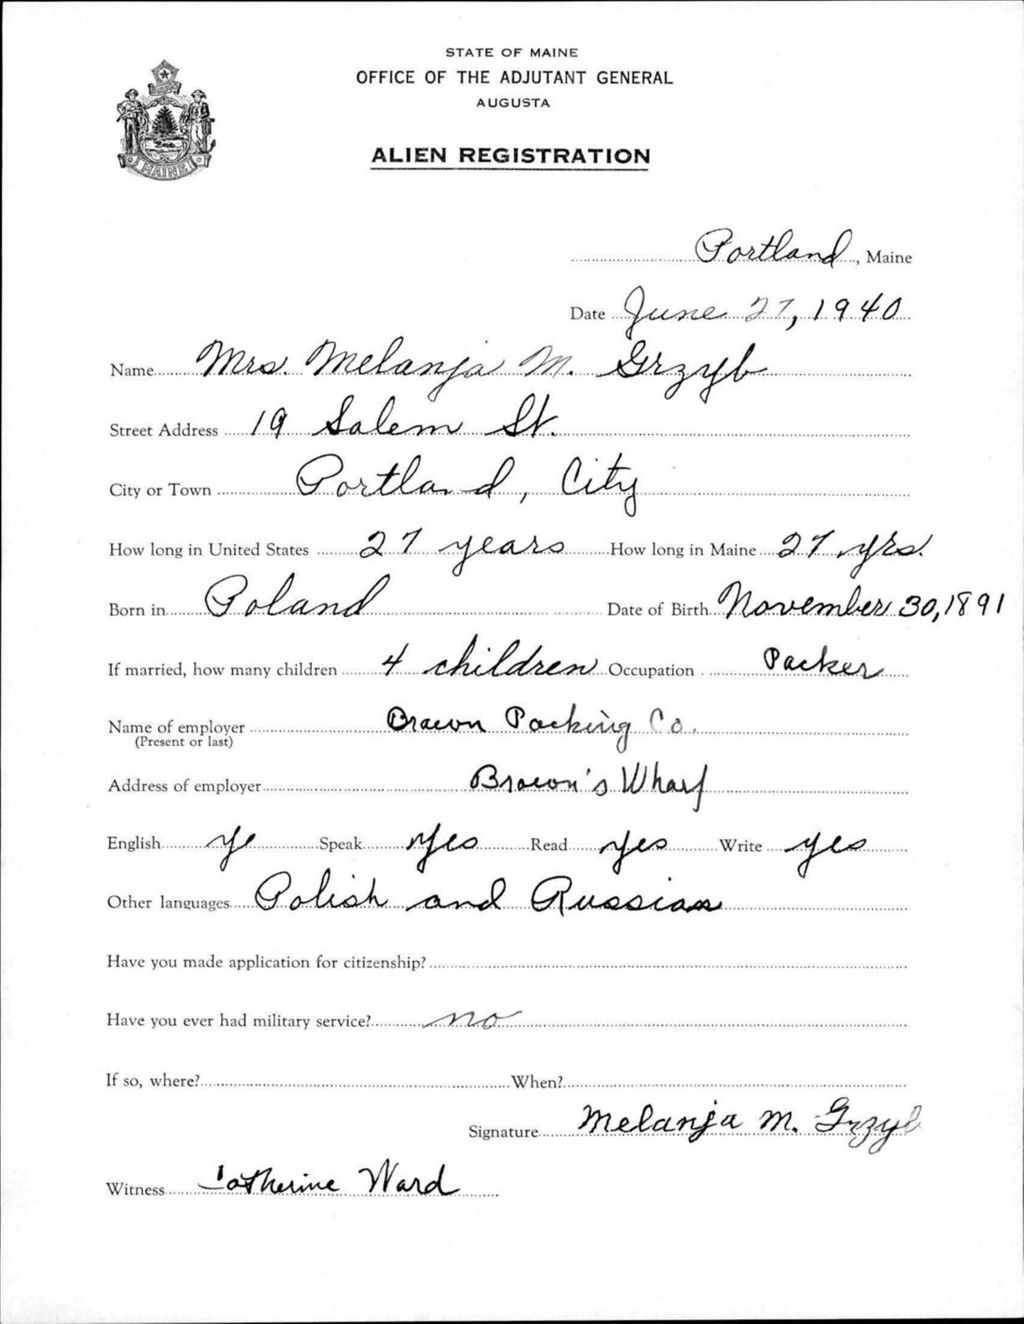 STATE OF MAINE
OFFICE OF THE ADJUTANT GENERAL
AUGUSTA
ALIEN REGISTRATION
MAINE
Portland, Maine
Date June 27, 1940
Name Mrs. Melanja M. Grzyb
Street Address 19 Salem St.
City or Town Portland, City
How long in United States 27 years How long in Maine 27 yrs.
Born in Poland Date of Birth November 30, 1891
If married, how many children 4 children Occupation Packer
Name of employer Brown Packing Co.
(Present or last)
Address of employer Brown's Wharf
English ye Speak yes Read yes Write yes
Other languages Polish and Russian
Have you made application for citizenship?
Have you ever had military service? no
If so, where? When?
Signature Melanja M. Grzyb
Witness Catherine Ward